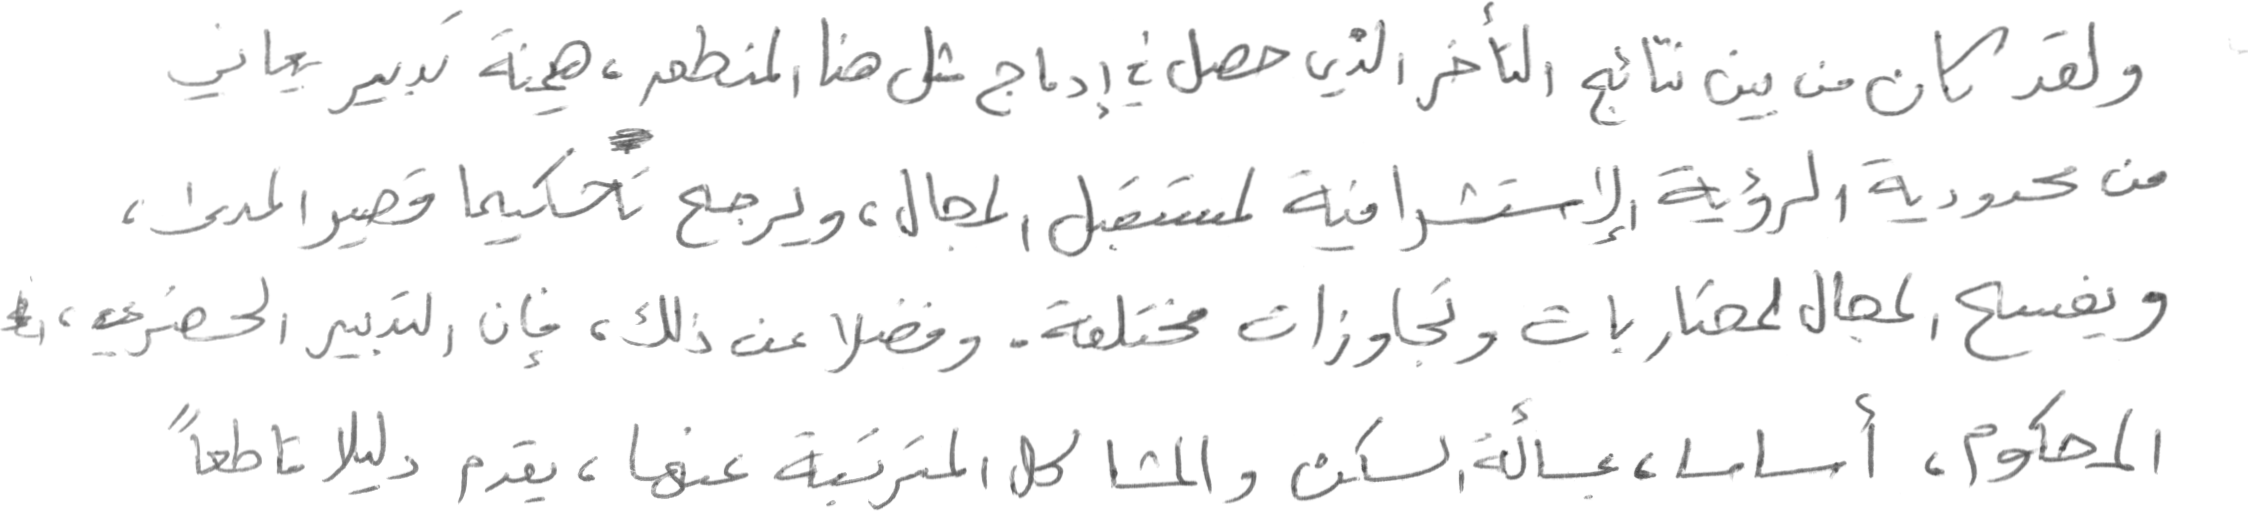 ولقد كان من بين نتائج التأخر الذي حصل في إدماج مثل هذا المنظور، هيمنة تدبير يعاني
من محدودية الرؤية الإستشرافية لمستقبل المجال، ويرجع تحكيما قصير المدى،
ويفسح المجال لمضاربات وتجاوزات مختلفة. وفضلا عن ذلك، فإن التدبير الحضري،
المحكوم، أساسا، بمسألة السكن والمشاكل المترتبة عنها، يقدم دليلا قاطعاً